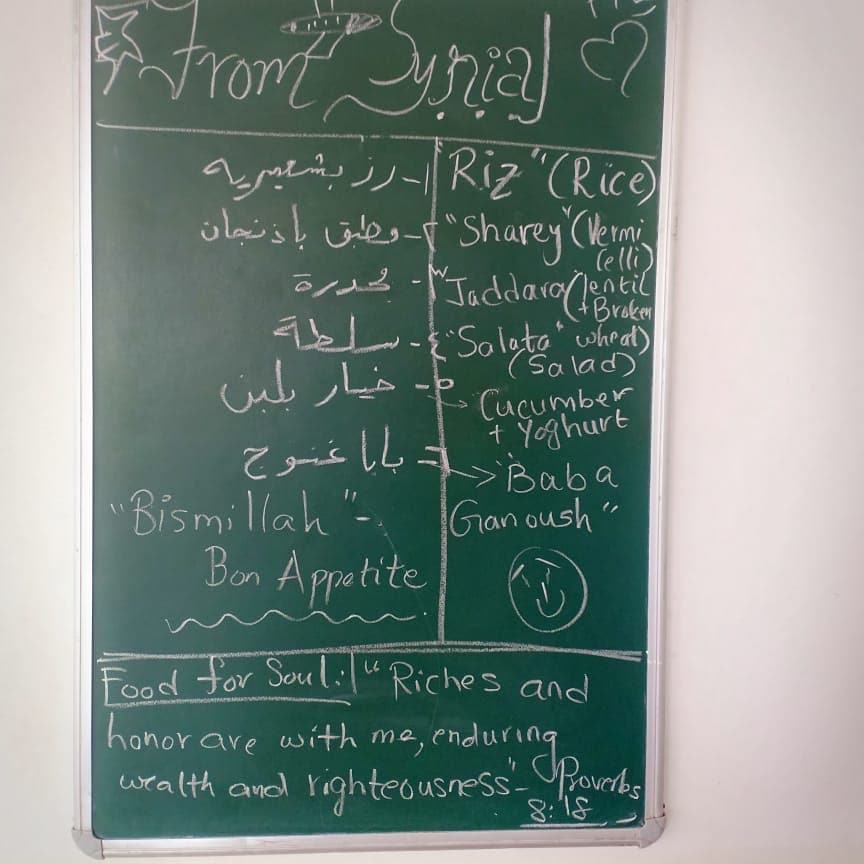 From Syria
١- رز بشعيريه "Riz" (Rice)
٢- وطبق باذنجان "Sharey" (Vermi
celli)
٣- مجدرة Jaddara (lentil
+ Broken
٤- سلطة "Salata" wheat)
(Salad)
٥- خيار بلبن → Cucumber
+ Yoghurt
٦- بابا غنوج → "Baba
Ganoush"
"Bismillah" -
Bon Appetite
Food for Soul: "Riches and
honor are with me, enduring
wealth and righteousness" - Proverbs
8:18